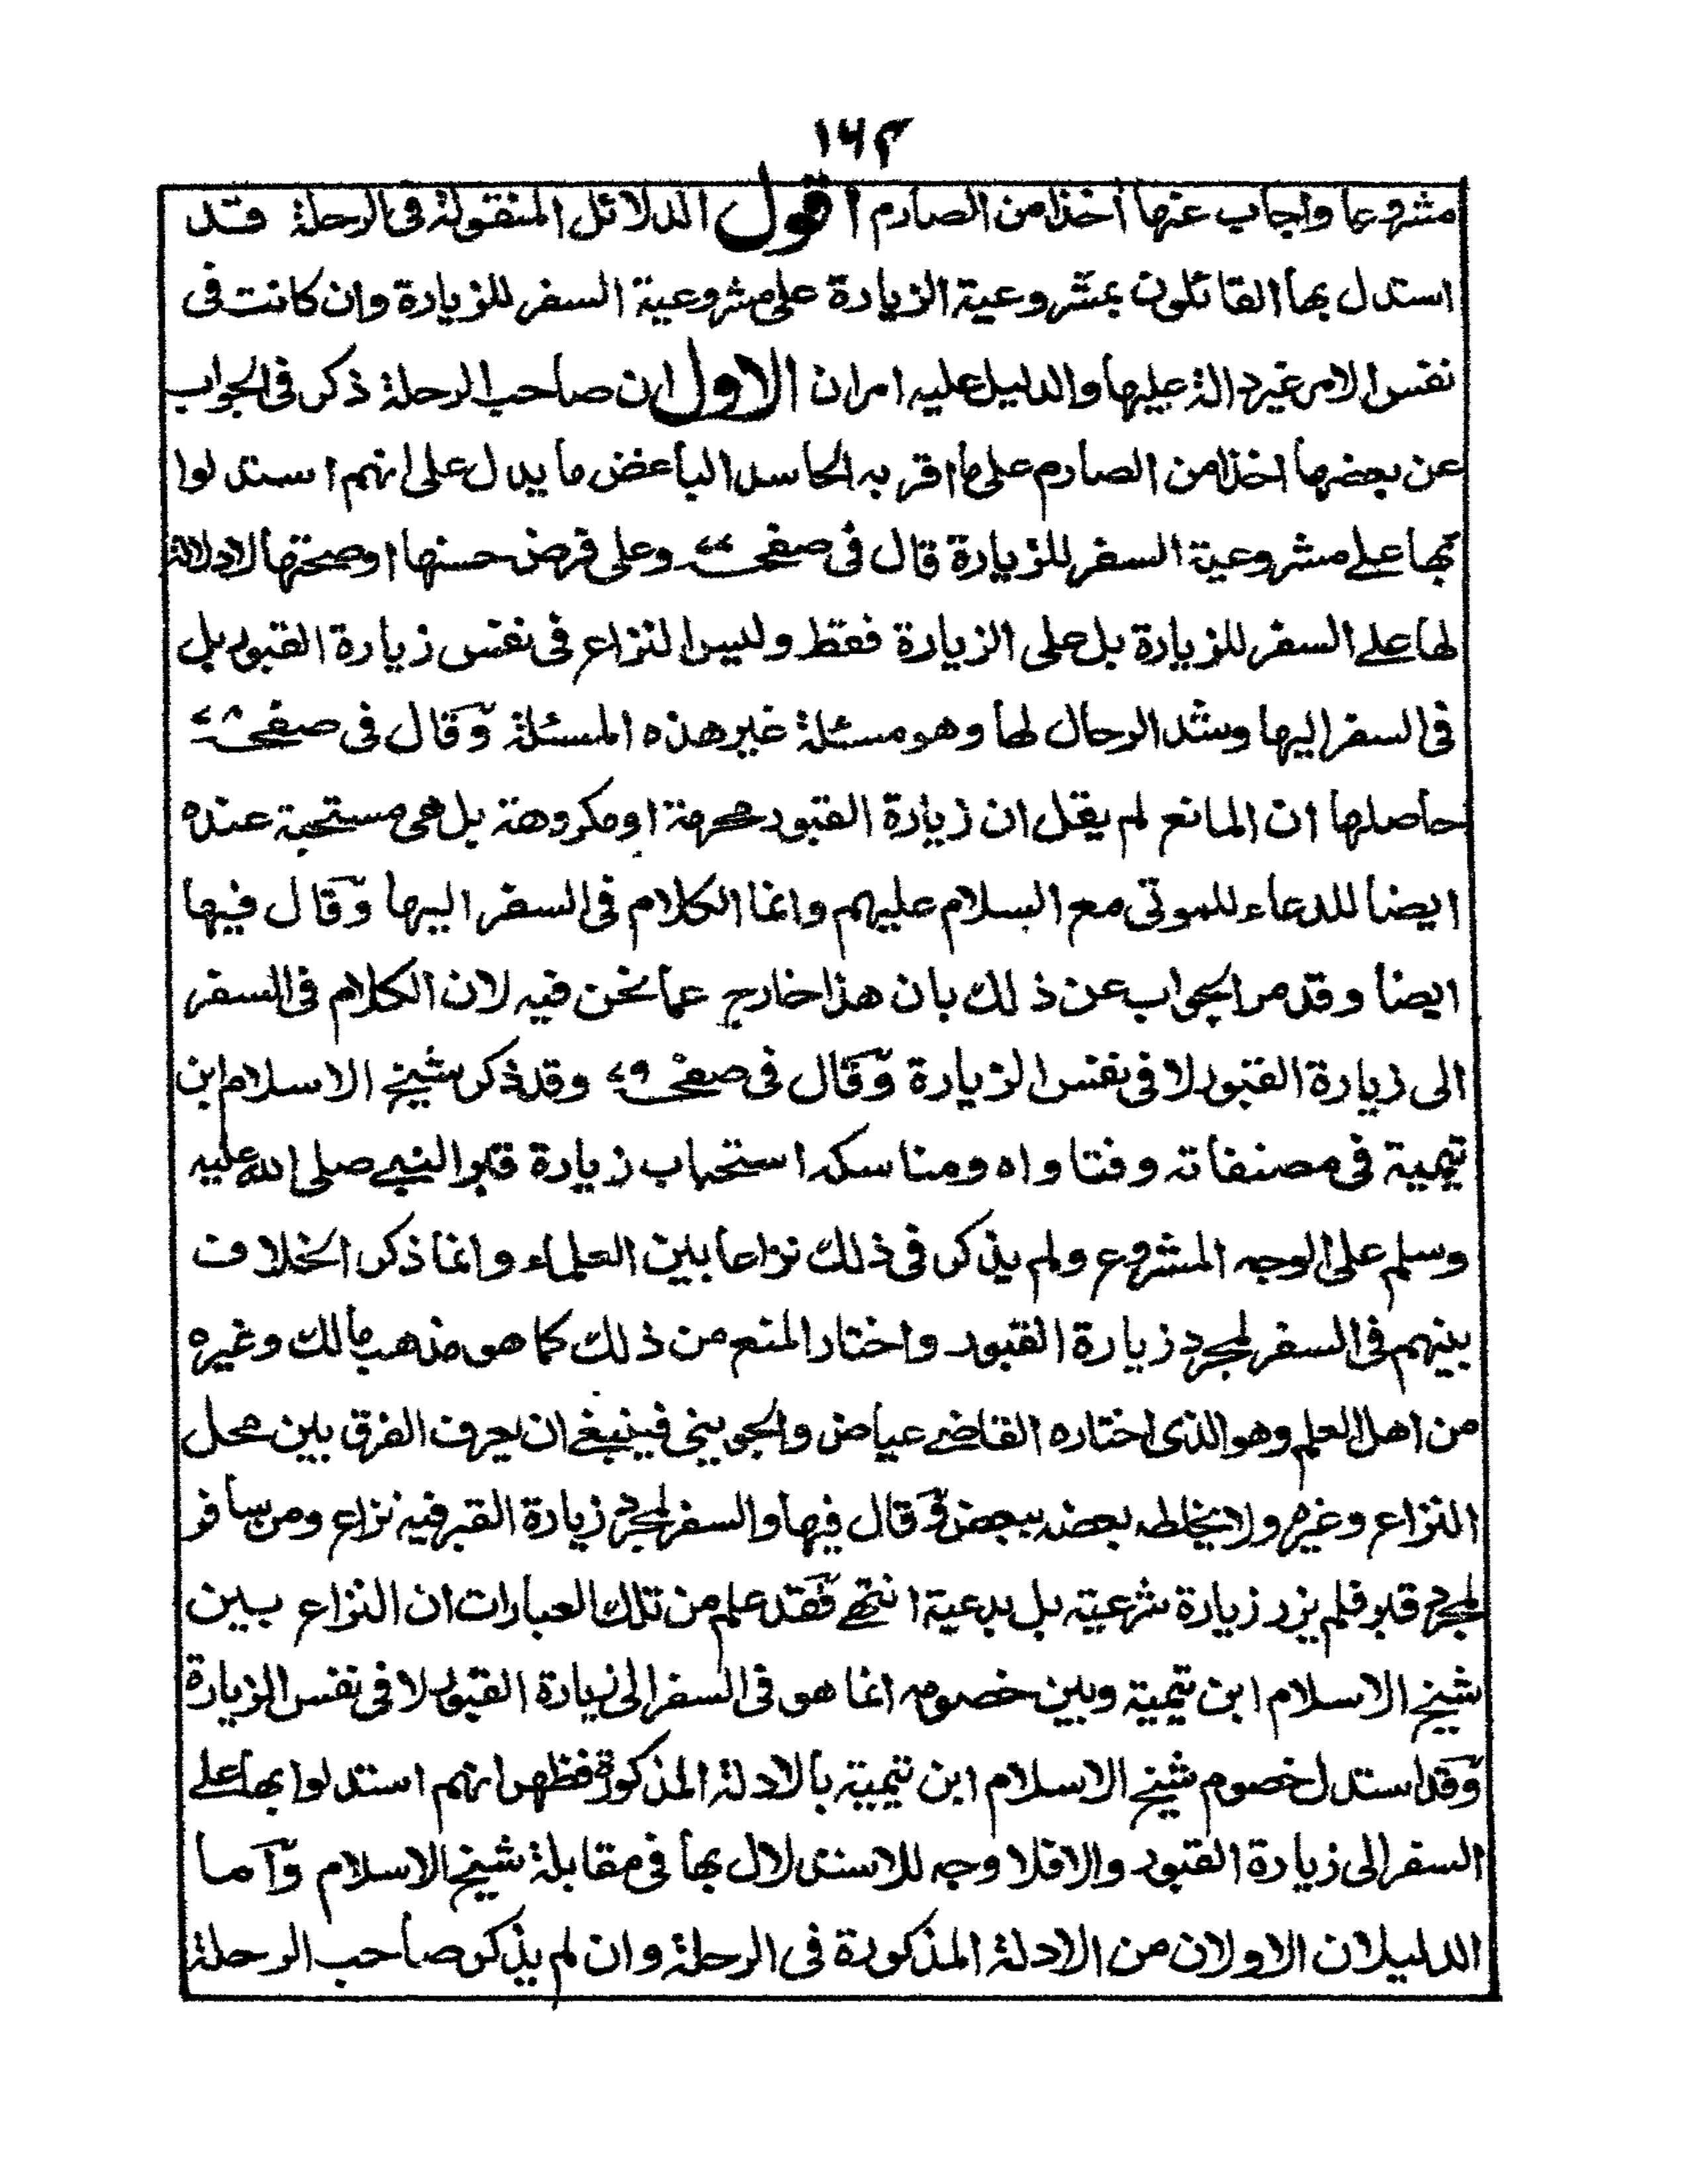 ١٦٢
مشروعا واجاب عنها اخذا من الصارم اقول الدلائل المنقولة فى الرحلة قد
استدل بها القائلون بمشروعية الزيارة على مشروعية السفر للزيارة وان كانت فى
نفس الامر غير دالة عليها والدليل عليه امران الاول ان صاحب الرحلة ذكر فى الجواب
عن بعضها اخذا من الصارم على ما اقر به الحاسد الباغض ما يدل على انهم استدلوا
بها على مشروعية السفر للزيارة قال فى صفحة وعلى فرض حسنها او صحتها لا دلالة
لها على السفر للزيارة بل على الزيارة فقط وليس النزاع فى نفس زيارة القبور بل
فى السفر اليها وشد الرحال لها وهو مسئلة غير هذه المسئلة وقال فى صفحة
حاصلها ان المانع لم يقل ان زيارة القبور محرمة او مكروهة بل هى مستحبة عنده
ايضا للدعاء للموتى مع السلام عليهم وانما الكلام فى السفر اليها وقال فيها
ايضا وقد مر الجواب عن ذلك بان هذا خارج عما نحن فيه لان الكلام فى السفر
الى زيارة القبور لا فى نفس الزيارة وقال فى صفحة وقد ذكر شيخ الاسلام ابن
تيمية فى مصنفاته وفتاواه ومناسكه استحباب زيارة قبر النبى صلى الله عليه
وسلم على الوجه المشروع ولم يذكر فى ذلك نزاعا بين العلماء وانما ذكر الخلاف
بينهم فى السفر لمجرد زيارة القبور واختار المنع من ذلك كما هو مذهب مالك وغيره
من اهل العلم وهو الذى اختاره القاضى عياض والجوينى فينبغى ان يعرف الفرق بين محل
النزاع وغيره ولا يخلطه بعضه ببعض وقال فيها والسفر لمجرد زيارة القبر فيه نزاع ومن سافر
لمجرد قبر فلم يزر زيارة شرعية بل بدعية انتهى فقد علم من تلك العبارات ان النزاع بين
شيخ الاسلام ابن تيمية وبين خصومه انما هو فى السفر الى زيارة القبور لا فى نفس الزيارة
وقد استدل خصوم شيخ الاسلام ابن تيمية بالادلة المذكورة فظهر انهم استدلوا بها على
السفر الى زيارة القبور والا فلا وجه للاستدلال بها فى مقابلة شيخ الاسلام وآما
الدليلان الاولان من الادلة المذكورة فى الرحلة وان لم يذكر صاحب الرحلة